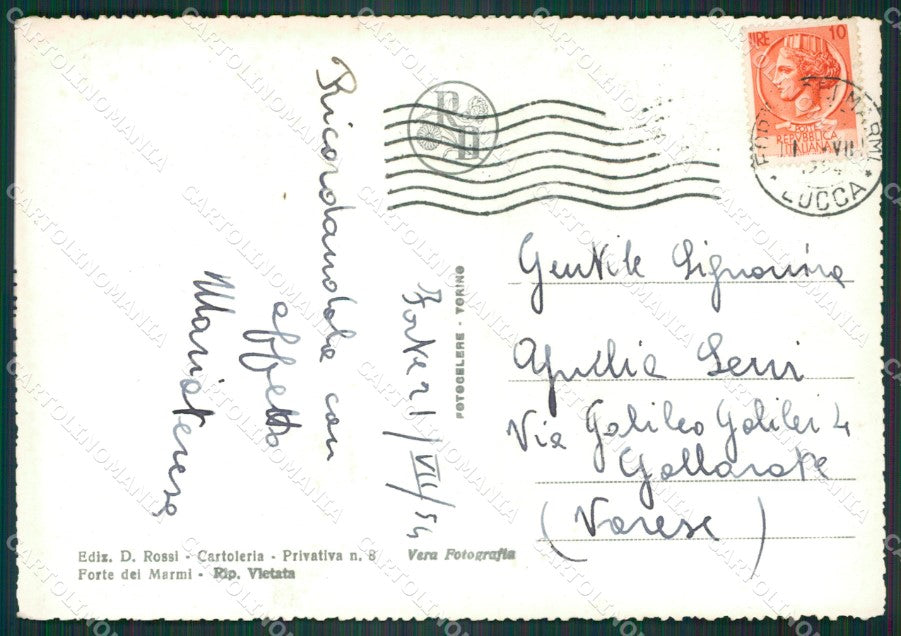 Ricordandola con
affetto
Mariateresa
Forte 21/VII/54
FOTOCELERE - TORINO
Gentile Signorina
Serri
Via Galileo Galilei 4
Gallarate
(Varese)
LIRE 10
REPUBBLICA
ITALIANA
FORTE DEI MARMI
VII
1954
* LUCCA *
Ediz. D. Rossi - Cartoleria - Privativa n. 8
Forte dei Marmi - Rip. Vietata
Vera Fotografia
RD
CARTOLINOMANIA